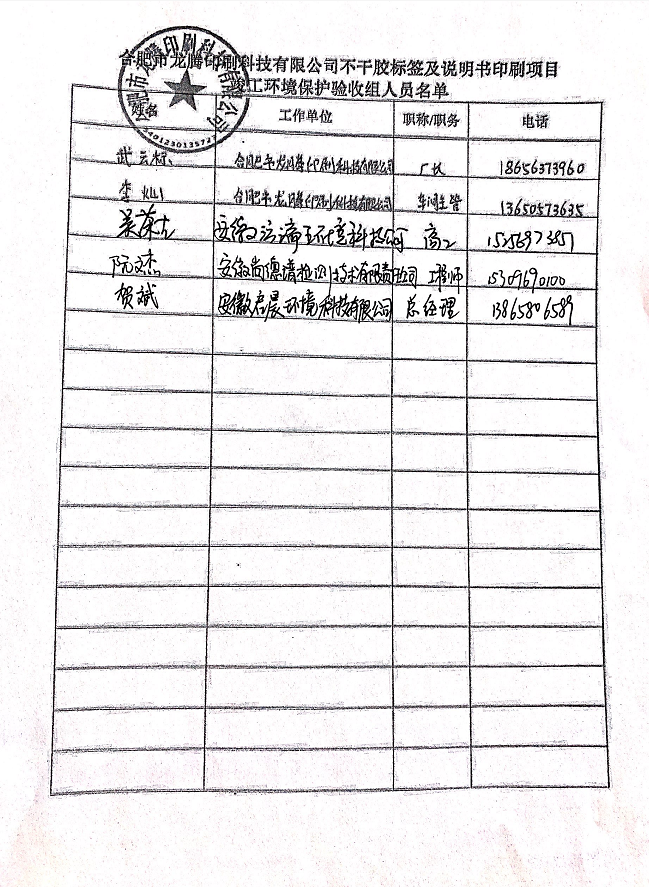 合肥市龙腾印刷科技有限公司不干胶标签及说明书印刷项目
竣工环境保护验收组人员名单
合肥市龙腾印刷科技有限公司
3401230135727
签名 工作单位 职称/职务 电话
武云标 合肥市龙腾印刷科技有限公司 厂长 18656373960
李灿 合肥市龙腾印刷科技有限公司 车间主管 13650573635
安徽 环境科技公司 高工 15256973857
阮文杰 安徽尚德谱检测技术有限责任公司 工程师 15309690100
贺斌 安徽启晨环境科技有限公司 总经理 13865806589